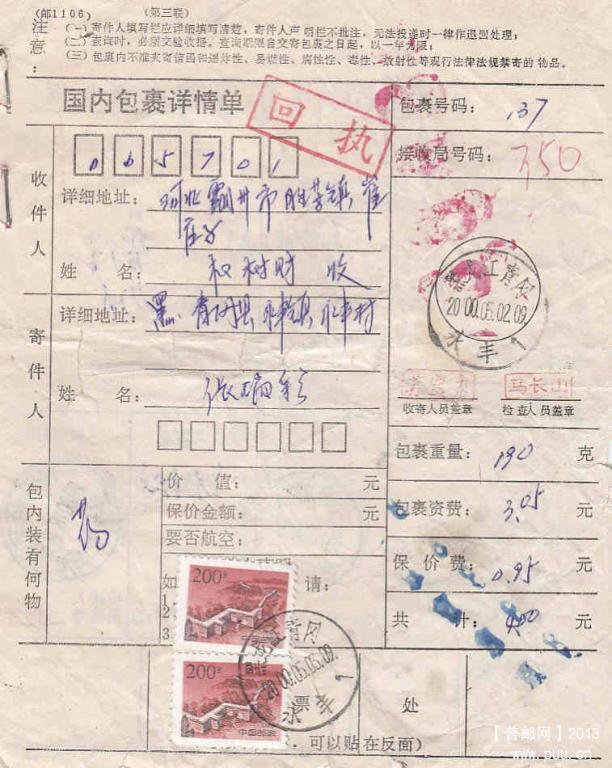 (邮1106) (第三联)
注意:
(一) 寄件人填写栏应详细填写清楚，寄件人声明栏不批注，无法投递时一律作退回处理；
(二) 查询时，必须交验收据。查询期限自交寄包裹之日起，以一年为限；
(三) 包裹内不准夹寄信函和爆炸性、易燃性、腐蚀性、毒性、放射性等现行法律法规禁寄的物品。
国内包裹详情单
回执
包裹号码: 137
接收局号码: 350
065701
收件人
详细地址: 河北霸州市胜芳镇崔庄子
姓名: 权树财 收
寄件人
详细地址: 黑 青冈县永丰镇永丰村
姓名: 张
黑龙江青冈
2000.05.02.09
永丰 1
马长山
收寄人员盖章
检查人员盖章
包裹重量: 190 克
包内装有何物
药
价值: 元
保价金额: 元
要否航空:
如 请:
1
2
3
包裹资费: 3.05 元
保价费: 0.95 元
共计: 4.00 元
200分
200分
中国邮政
黑龙江青冈
永丰 1
票 处
可以贴在反面)
【普邮网】2013
www.puu.cn